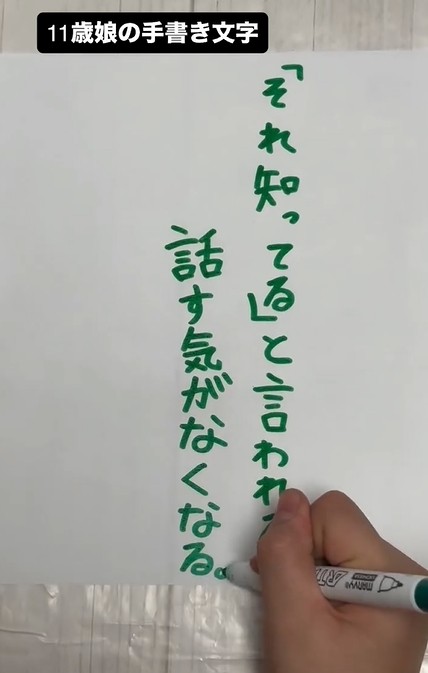 11歳娘の手書き文字
「それ知ってる」と言われ
話す気がなくなる。